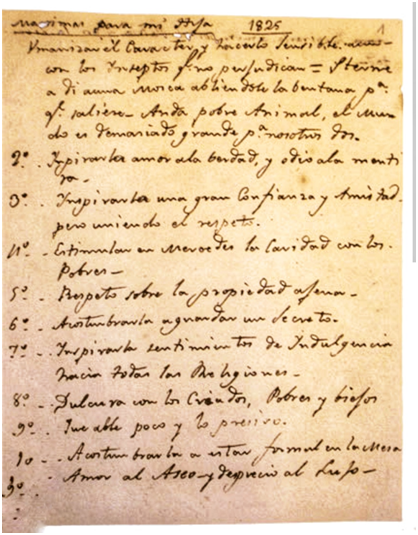 Maximas para mi Hija 1825 1
Umanizar el Caracter y hacerlo sensible aun
con los Inseptos qe. no perjudican = Sterne
a dicauna Mosca abriendole la bentana pa.
qe. saliese - Anda pobre Animal, el Mun
do es demaciado grande pa. nosotros dos.
2º - Inpirarla amor ala berdad, y odio ala menti
ra -
3º - Inspirarla una gran Confianza y Amistad
pero uniendo el respeto.
4º - Estimular en Mercedes la Caridad con los
Pobres -
5º - Respeto sobre la propiedad ajena -
6º - Acostumbrarla a guardar un Secreto.
7º - Inspirarla sentimientos de Indulgencia
hacia todas las Religiones -
8º - Dulcura con los Criados, Pobres y biejos
9º - Que able poco y lo presiso.
10 - Acostumbrarla a estar formal en la Mesa
Amor al Aseo y desprecio al Lujo -